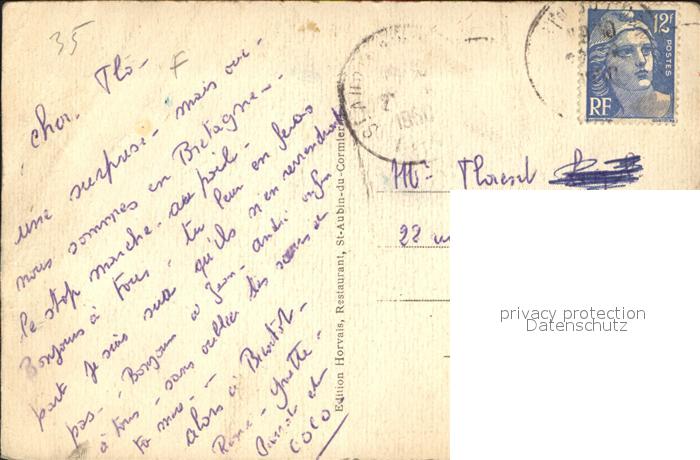 35
F
cher Flo -
une surprise - mais oui -
nous sommes en Bretagne -
le stop marche au poil -
Bonjour à tous - tu leur en feras
part je suis sur qu'ils n'en reviendront
pas - Bonjour à Jean-André enfin
à tous - sans oublier tes soeurs et
ta mère -
alors à Bientôt -
Yvette -
et
COCO
Edition Horvais, Restaurant, St-Aubin-du-Cormier
ST AUB
1950
12F
POSTES
RF
Mr
22
privacy protection
Datenschutz